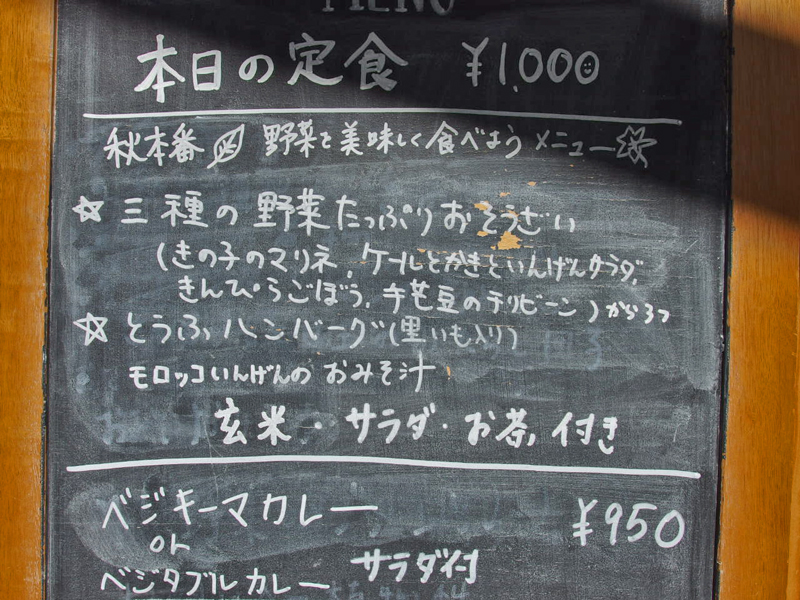 MENU
本日の定食 ¥1,000
秋本番 野菜を美味しく食べよう メニュー
☆三種の野菜たっぷりおそうざい
(きの子のマリネ、ケールとかきといんげんサラダ、
きんぴらごぼう、手芒豆のチリビーン)から3つ
☆とうふハンバーグ(里いも入り)
モロッコいんげんのおみそ汁
玄米・サラダ・お茶付き
ベジキーマカレー ¥950
or サラダ付
ベジタブルカレー